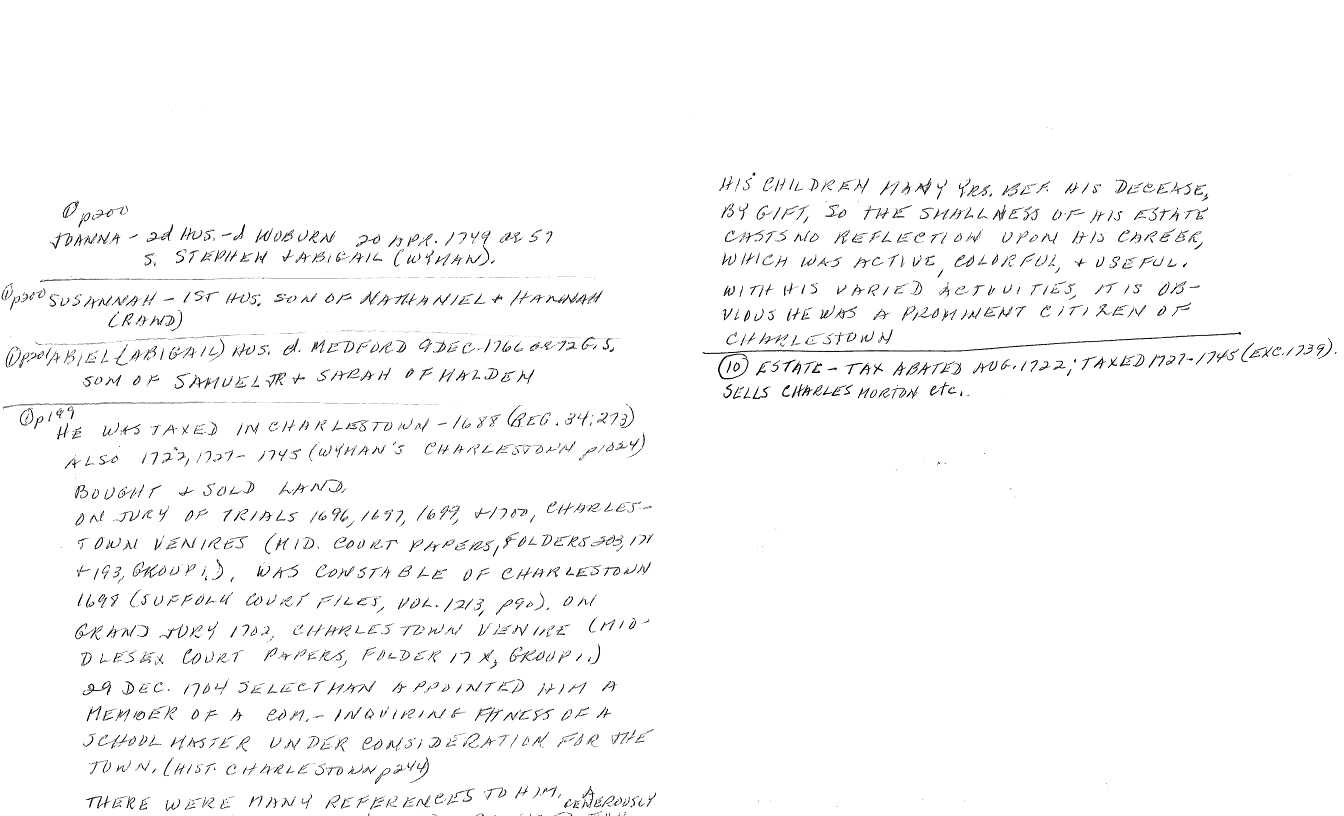 ① p200
JOANNA - 2d HUS. - d WOBURN 20 APR. 1749 AE 57
S. STEPHEN + ABIGAIL (WYMAN).
① p200 SUSANNAH - 1ST HUS. SON OF NATHANIEL + HANNAH
(RAND)
① p201 ABIEL (ABIGAIL) HUS. d. MEDFORD 9 DEC. 1766 AE 72 G.S.
SON OF SAMUEL JR + SARAH OF MALDEN
① p199
HE WAS TAXED IN CHARLESTOWN - 1688 (REG. 34:273)
ALSO 1722, 1727 - 1745 (WYMAN'S CHARLESTOWN p1024)
BOUGHT + SOLD LAND.
ON JURY OF TRIALS 1696, 1697, 1699, + 1700, CHARLES-
TOWN VENIRES (MID. COURT PAPERS, FOLDERS 203, 171
+ 193, GROUP 1.), WAS CONSTABLE OF CHARLESTOWN
1698 (SUFFOLK COURT FILES, VOL. 1213, p90). ON
GRAND JURY 1702, CHARLESTOWN VENIRE (MID-
DLESEX COURT PAPERS, FOLDER 17 X, GROUP 1.)
29 DEC. 1704 SELECTMAN APPOINTED HIM A
MEMBER OF A COM. - INQUIRING FITNESS OF A
SCHOOL MASTER UNDER CONSIDERATION FOR THE
TOWN. (HIST. CHARLESTOWN p244)
THERE WERE MANY REFERENCES TO HIM. A
GENEROUSLY
HIS CHILDREN MANY YRS. BEF. HIS DECEASE,
BY GIFT, SO THE SMALLNESS OF HIS ESTATE
CASTS NO REFLECTION UPON HIS CAREER,
WHICH WAS ACTIVE, COLORFUL, + USEFUL.
WITH HIS VARIED ACTIVITIES, IT IS OB-
VIOUS HE WAS A PROMINENT CITIZEN OF
CHARLESTOWN
⑩ ESTATE - TAX ABATED AUG. 1722; TAXED 1727-1745 (EXC. 1739).
SELLS CHARLES MORTON etc..